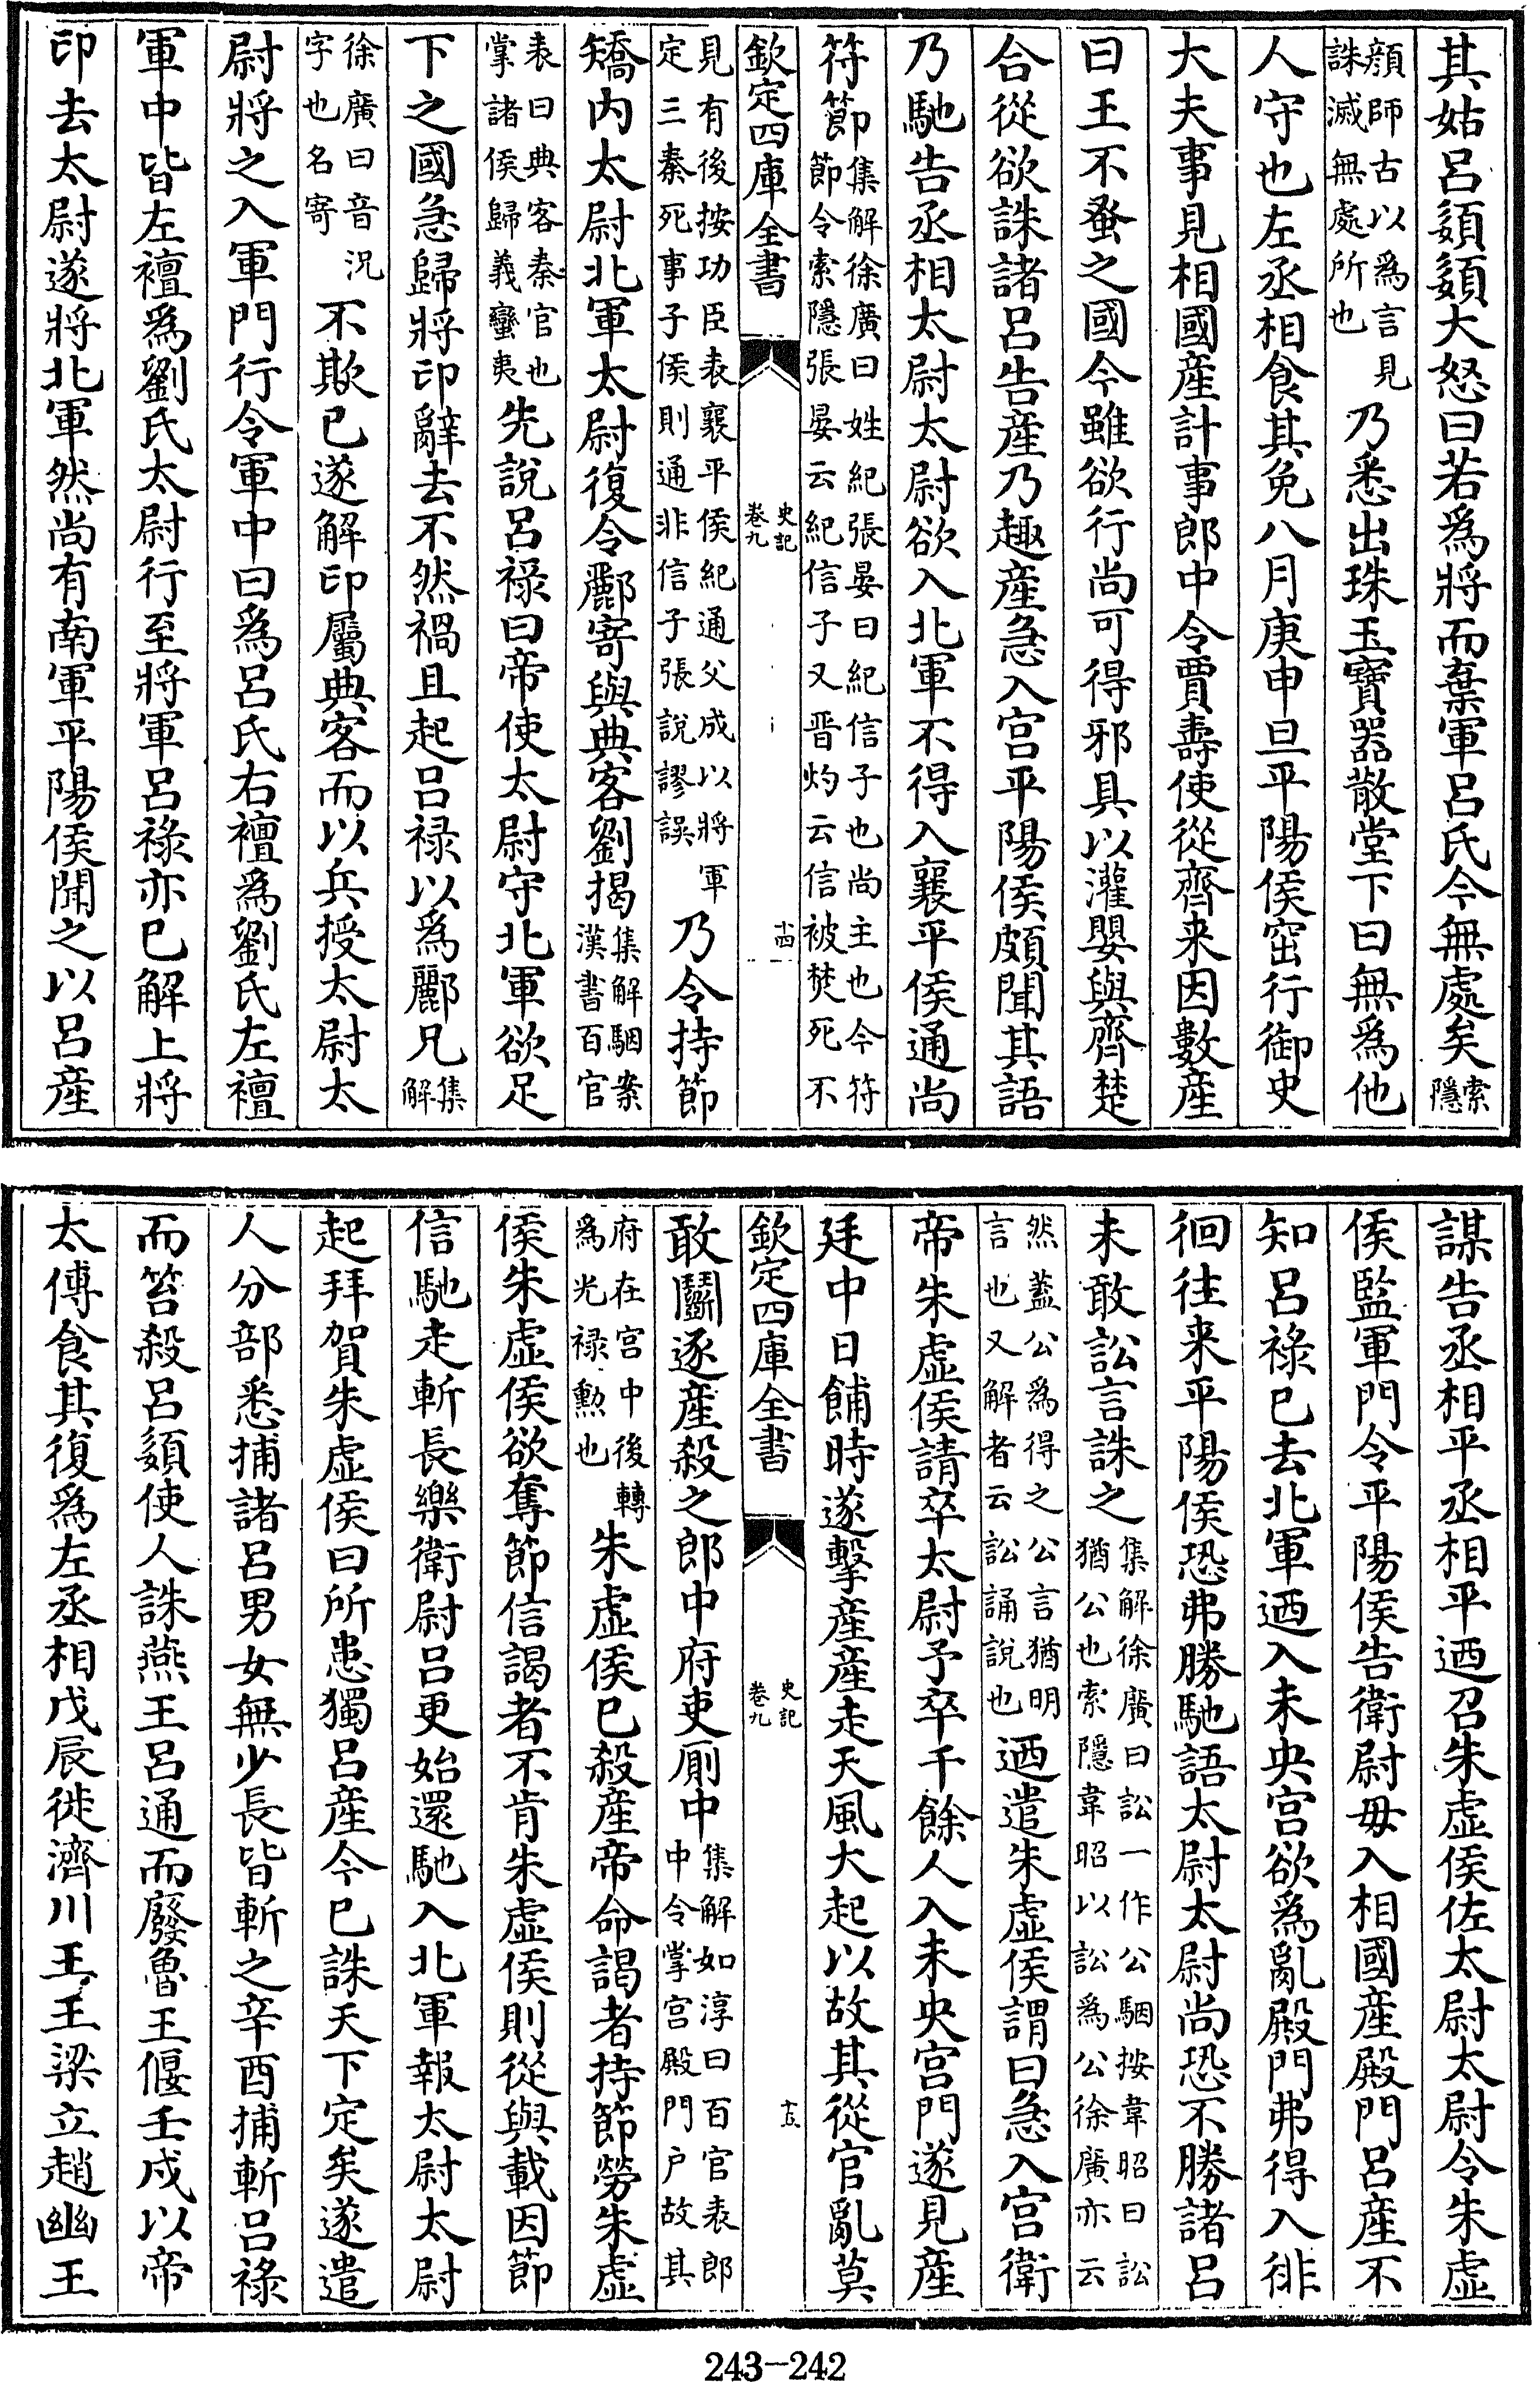 其姑呂嬃嬃大怒曰若為將而棄軍呂氏今無處矣索隱
顔師古以為言見誅滅無處所也乃悉出珠玉寶器散堂下曰無為他
人守也左丞相食其免八月庚申旦平陽侯窋行御史
大夫事見相國産計事郎中令賈壽使從齊来因數産
曰王不蚤之國今雖欲行尚可得邪具以灌嬰與齊楚
合從欲誅諸呂告産乃趣産急入宫平陽侯頗聞其語
乃馳告丞相太尉太尉欲入北軍不得入襄平侯通尚
符節集解徐廣曰姓紀張晏曰紀信子也尚主也今符節令索隱張晏云紀信子又晉灼云信被焚死不
欽定四庫全書 史記卷九 十四
見有後按功臣表襄平侯紀通父成以將軍定三秦死事子侯則通非信子張說謬誤乃令持節
矯内太尉北軍太尉復令酈寄與典客劉揭集解駰案漢書百官
表曰典客秦官也掌諸侯歸義蠻夷先說呂禄曰帝使太尉守北軍欲足
下之國急歸將印辭去不然禍且起呂禄以為酈兄集解
徐廣曰音況字也名寄不欺已遂解印屬典客而以兵授太尉太
尉將之入軍門行令軍中曰為呂氏右襢為劉氏左襢
軍中皆左襢為劉氏太尉行至將軍呂禄亦已解上將
印去太尉遂將北軍然尚有南軍平陽侯聞之以呂産
謀告丞相平丞相平迺召朱虚侯佐太尉太尉令朱虚
侯監軍門令平陽侯告衛尉毋入相國産殿門呂産不
知呂禄已去北軍迺入未央宫欲為亂殿門弗得入徘
徊往来平陽侯恐弗勝馳語太尉太尉尚恐不勝諸呂
未敢訟言誅之集解徐廣曰訟一作公駰按韋昭曰訟猶公也索隱韋昭以訟為公徐廣亦云
然蓋公為得之公言猶明言也又解者云訟誦說也迺遣朱虚侯謂曰急入宫衛
帝朱虚侯請卒太尉予卒千餘人入未央宫門遂見産
廷中日餔時遂擊産産走天風大起以故其從官亂莫
欽定四庫全書 史記卷九 十五
敢鬭逐産殺之郎中府吏厠中集解如淳曰百官表郎中令掌宫殿門户故其
府在宫中後轉為光禄勲也朱虚侯已殺産帝命謁者持節勞朱虚
侯朱虚侯欲奪節信謁者不肯朱虚侯則從與載因節
信馳走斬長樂衛尉呂更始還馳入北軍報太尉太尉
起拜賀朱虚侯曰所患獨呂産今已誅天下定矣遂遣
人分部悉捕諸呂男女無少長皆斬之辛酉捕斬呂禄
而笞殺呂嬃使人誅燕王呂通而廢魯王偃壬戌以帝
太傅食其復為左丞相戊辰徙濟川王王梁立趙幽王
243-242